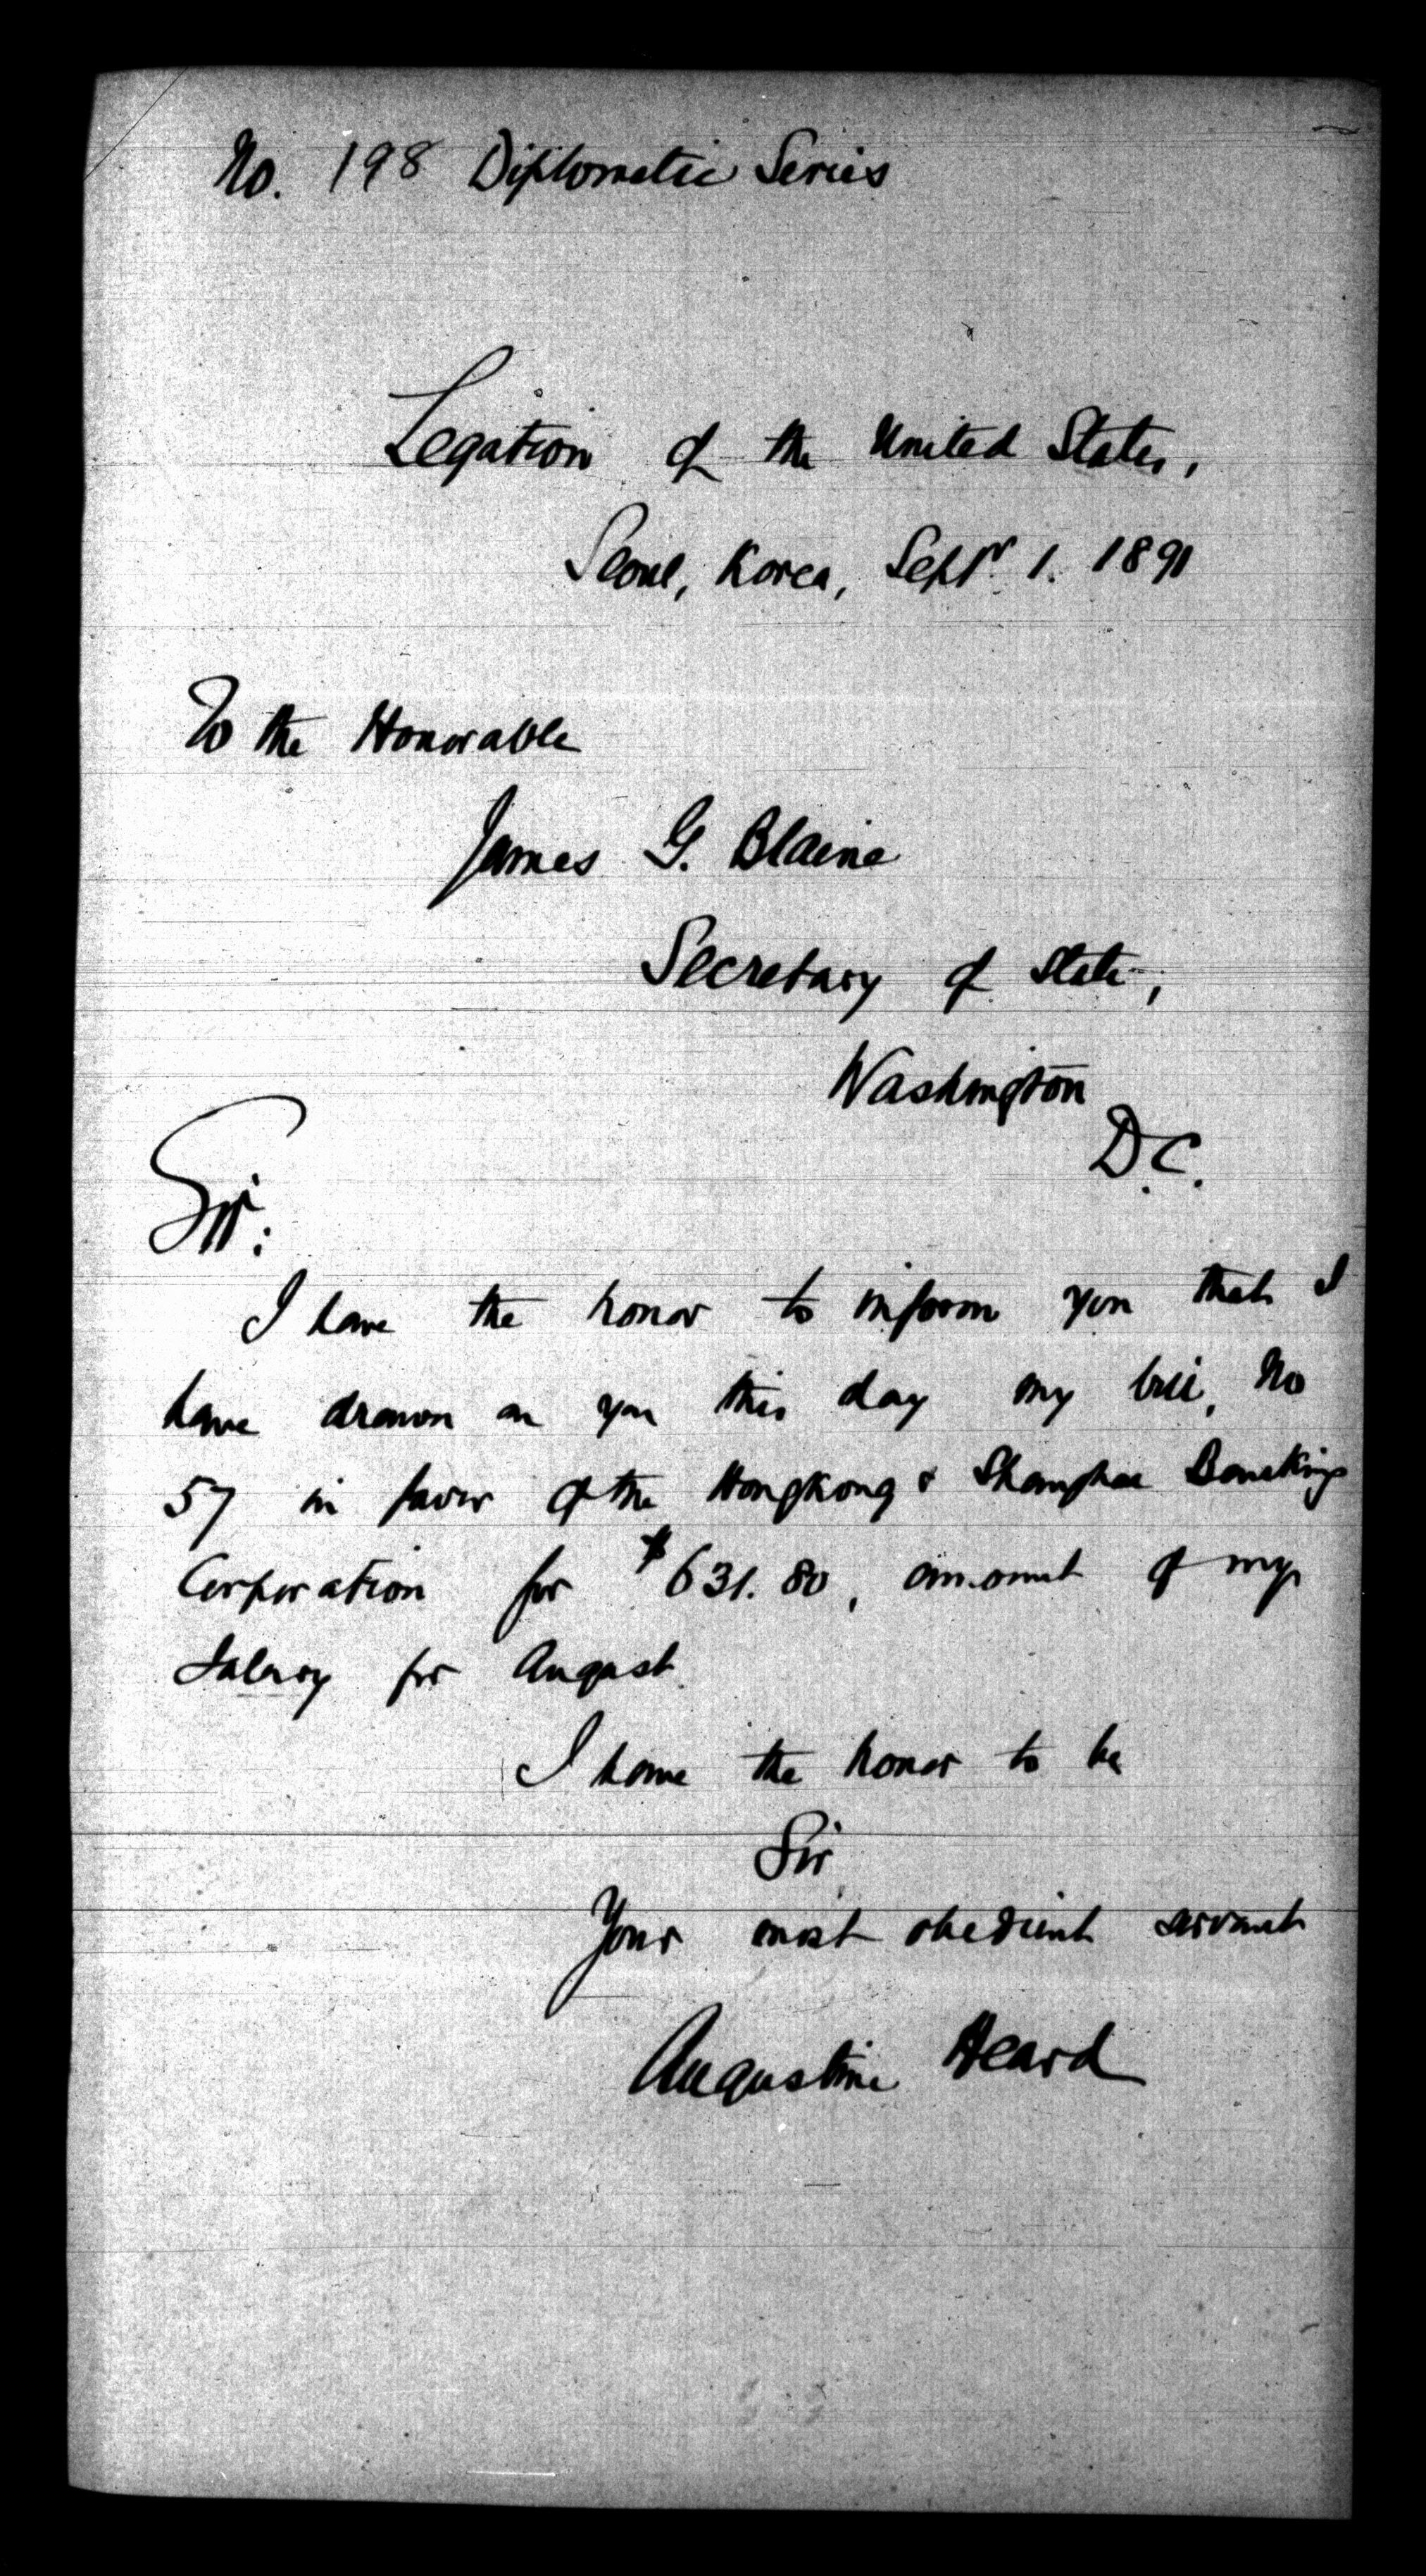 No. 198 Diplomatic Series
Legation of the United States,
Seoul, Korea, Septr. 1. 1891
To the Honorable
James G. Blaine
Secretary of State,
Washington
D.C.
Sir:
I have the honor to inform you that I
have drawn on you this day my bill, No
57 in favor of the Hongkong & Shanghae Banking
Corporation for $631.80, amount of my
Salary for August.
I have the honor to be
Sir
Your most obedient servant
Augustine Heard